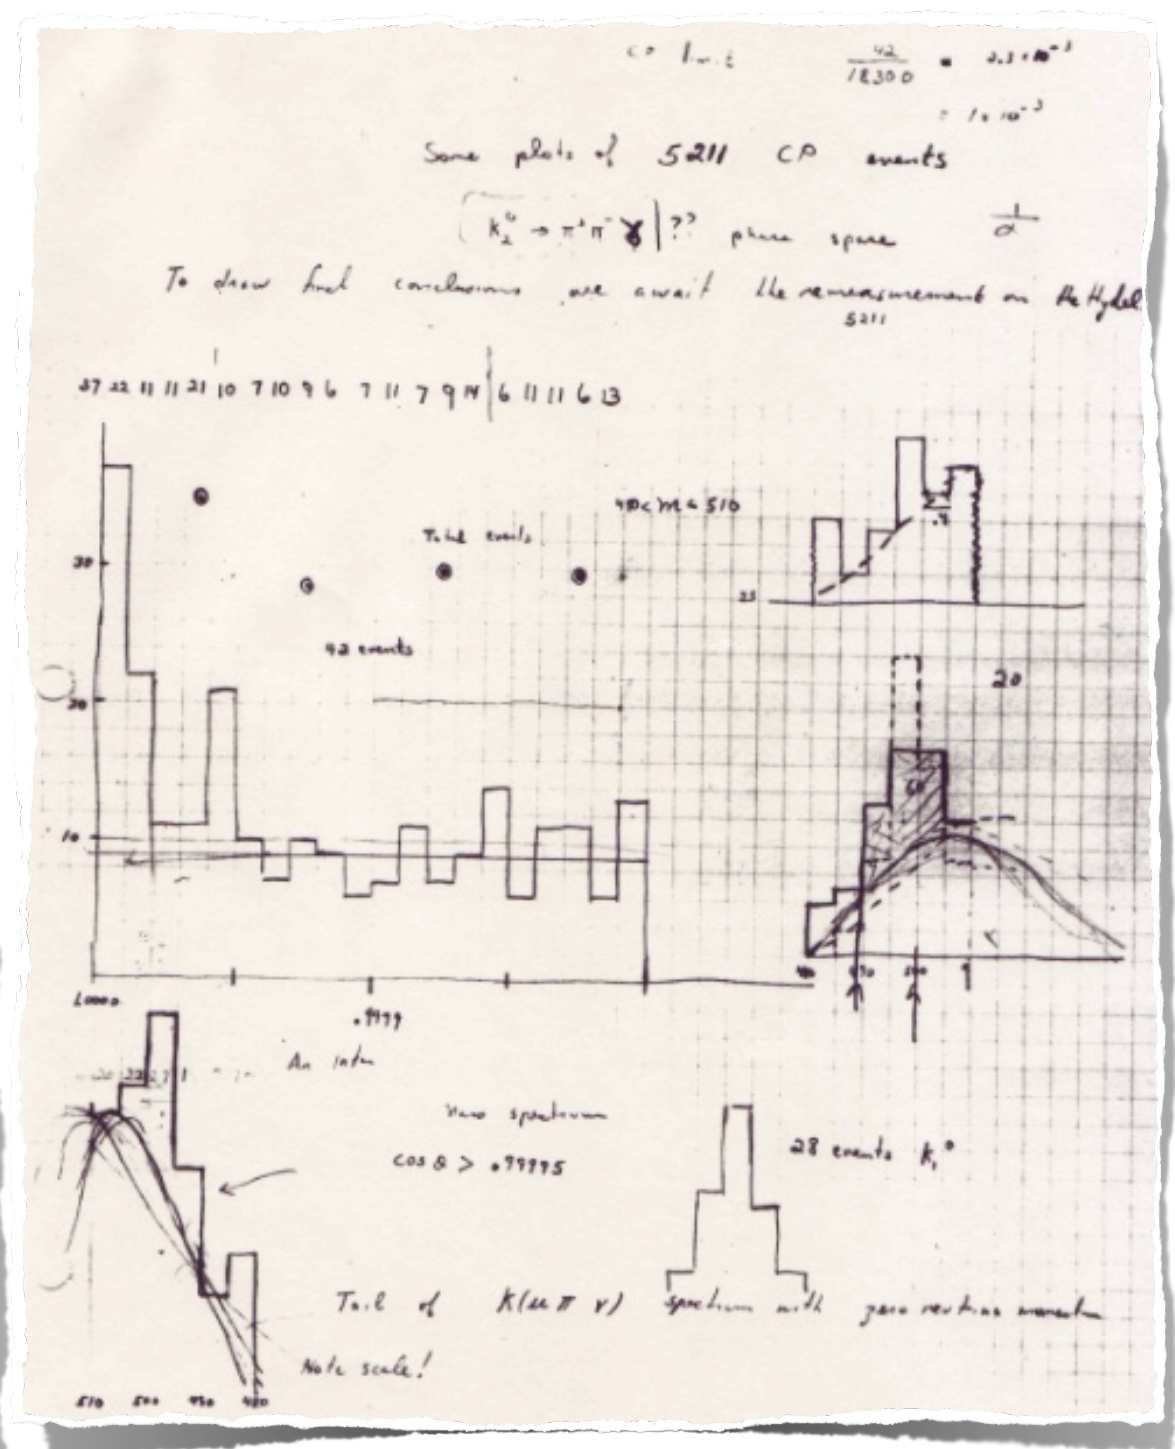 CP limit 42/18300 = 2.3 · 10⁻³
= 1 · 10⁻³
Some plots of 5211 CP events
K₂⁰ → π⁺π⁻γ ?? phase space 1/α
To draw final conclusions we await the remeasurement on the Hydel
5211
37 22 11 11 21 10 7 10 9 6 7 11 7 9 14 6 11 11 6 13
< m < 510
Total events
30
25
42 events
20
20
60
10
490 500
1.0000
.9999
An
22
Mass spectrum
cos θ > .99995
28 events K₁⁰
Tail of K(μ π ν) spectrum with zero neutrino momentum
Note scale!
510 500 490 480